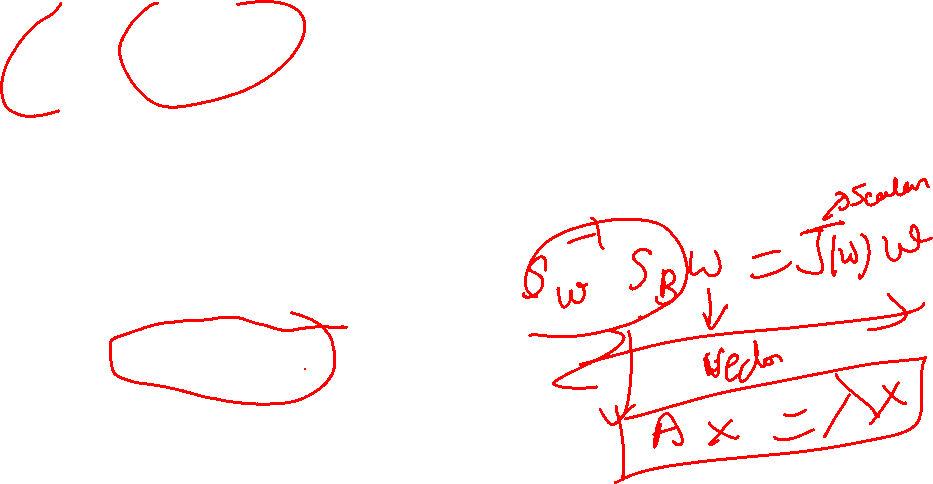 Scalar
S_W^{-1} S_B W = J(W) W
vector
A x = λ x